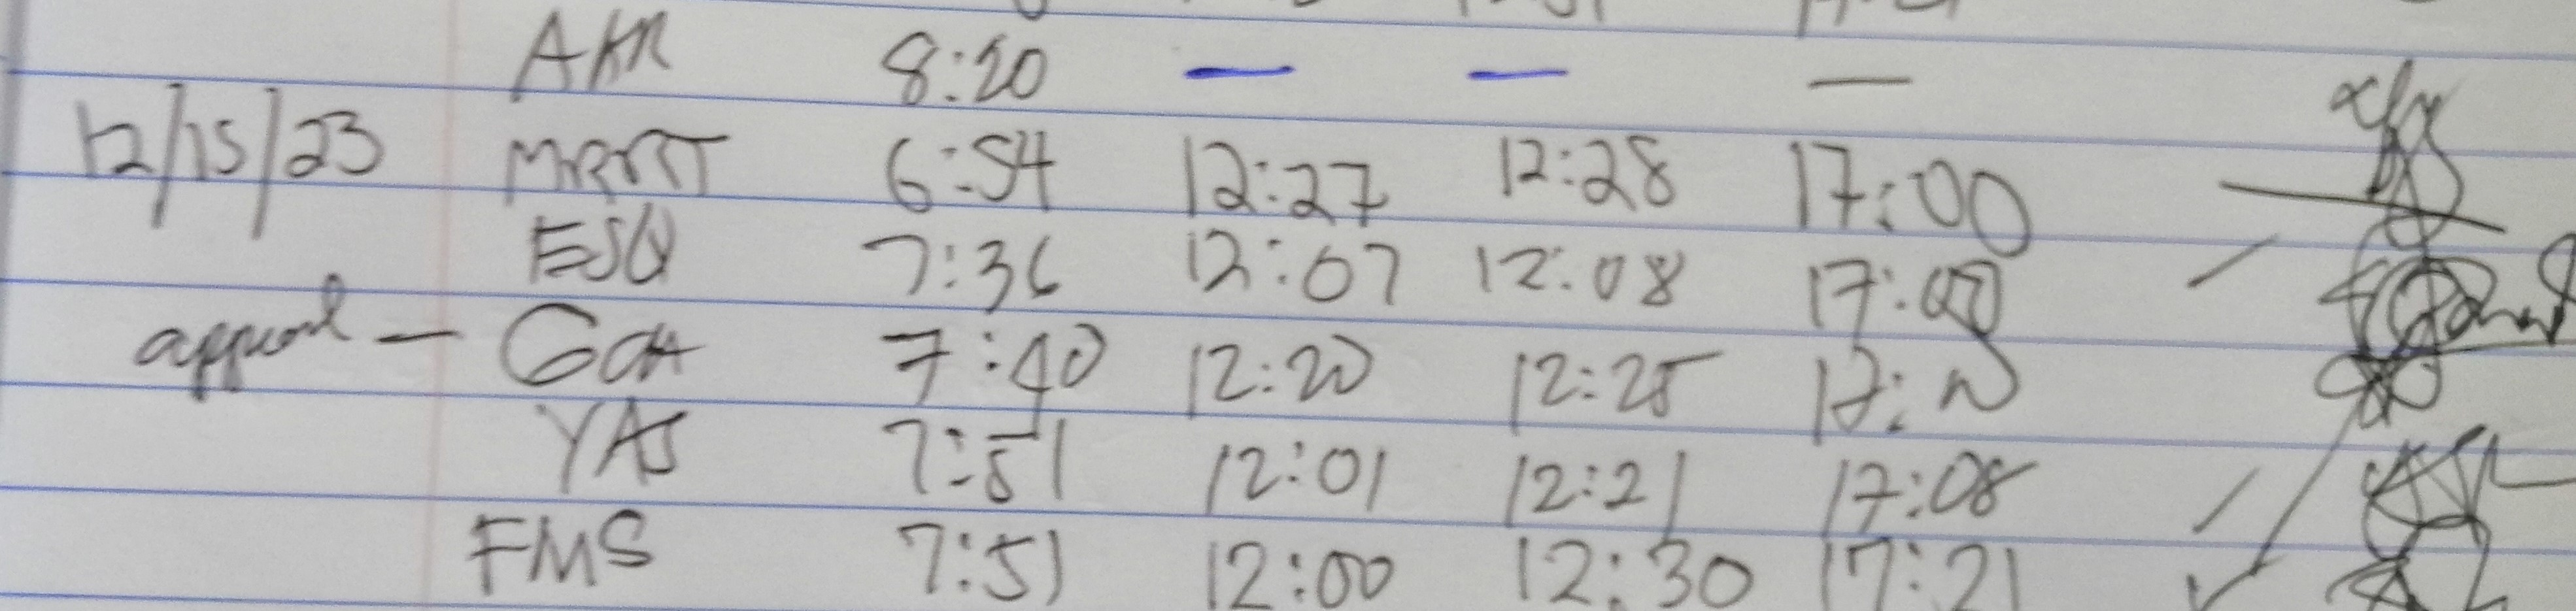 AKR 8:20 — — —
12/15/23 MRRT 6:54 12:27 12:28 17:00
ESQ 7:36 12:07 12:08
— GCA 7:40 12:20 12:25
YAS 7:51 12:01 12:21 17:08
FMS 7:51 12:00 12:30 17:21